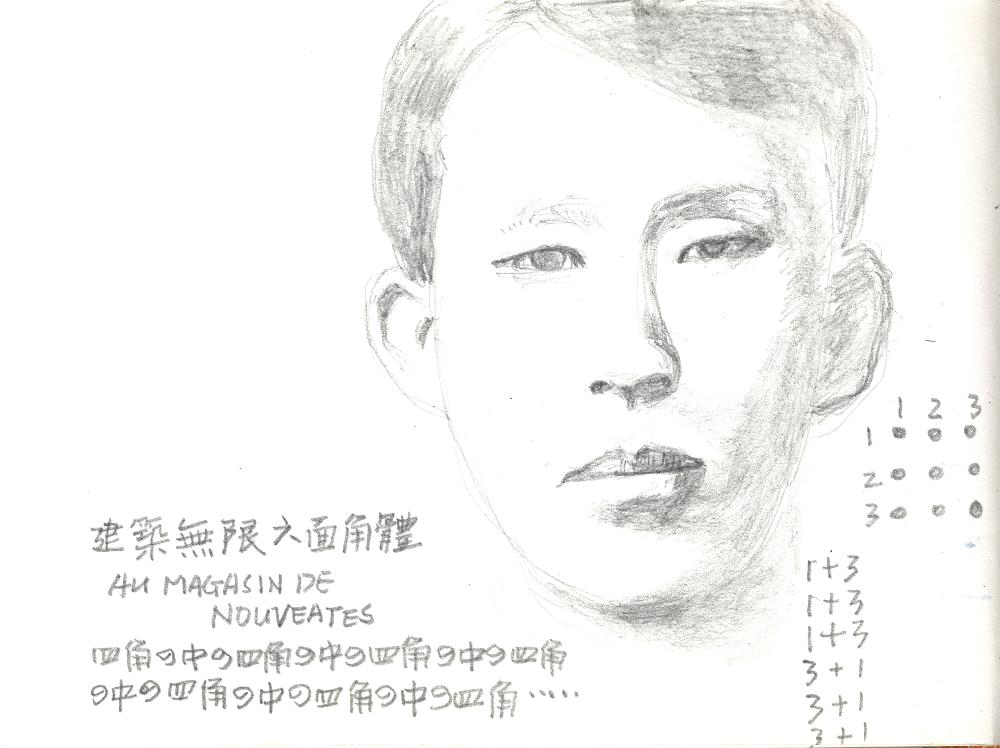 建築無限六面角體
AU MAGASIN DE
NOUVEATES
四角の中の四角の中の四角の中の四角
の中の四角の中の四角の中の四角.....
1 2 3
1
2
3
1+3
1+3
1+3
3+1
3+1
3+1